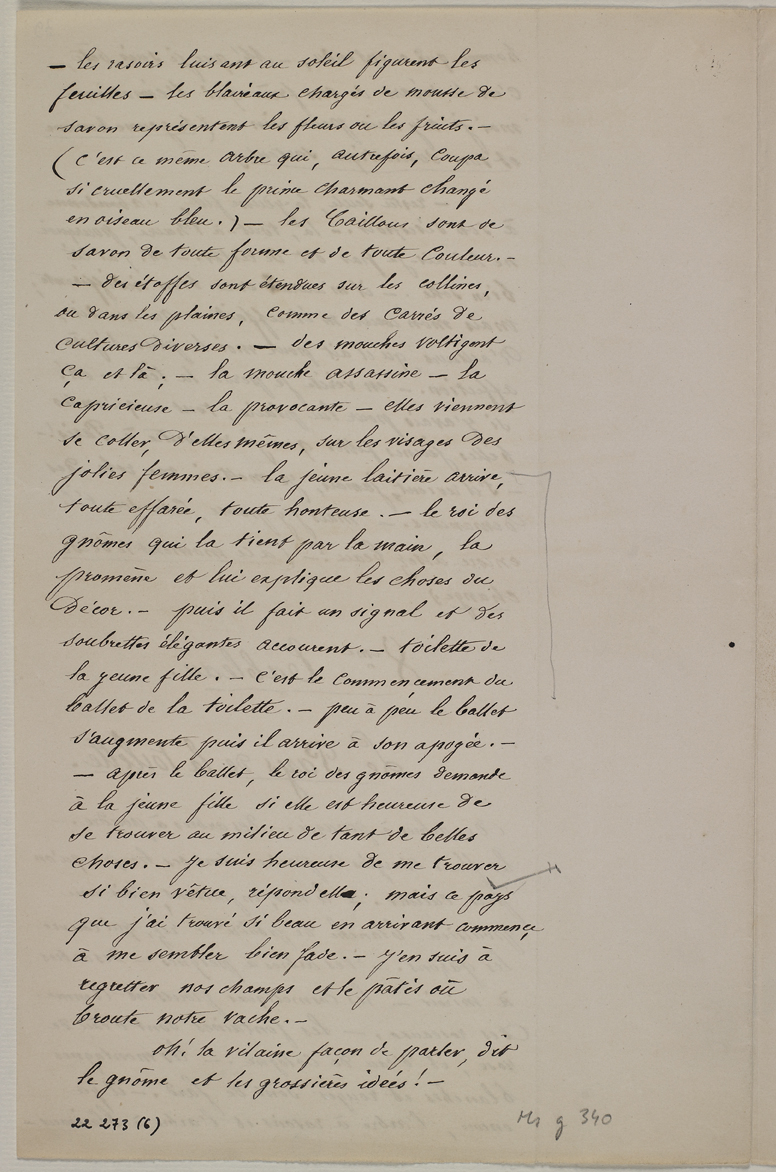 — les rasoirs luisant au soleil figurent les
feuilles — les blaireaux chargés de mousse de
savon représentent les fleurs ou les fruits. —
(C'est ce même arbre qui, autrefois, coupa
si cruellement le prince charmant changé
en oiseau bleu.) — les Cailloux sont de
savon de toute forme et de toute Couleur. —
— des étoffes sont étendues sur les collines,
ou dans les plaines, comme des Carrés de
Cultures Diverses. — des mouches voltigent
Ça et là ; — la mouche assassine — la
Capricieuse — la provocante — elles viennent
se coller, D'elles mêmes, sur les visages des
jolies femmes. — la jeune laitière arrive,
toute effarée, toute honteuse. — le roi des
gnômes qui la tient par la main, la
promène et lui explique les choses du
Décor. — puis il fait un signal et des
soubrettes élégantes accourent. — toilette de
la jeune fille. — C'est le Commencement du
ballet de la toilette. — peu à peu le ballet
s'augmente puis il arrive à son apogée. —
— après le ballet, le roi des gnômes demande
à la jeune fille si elle est heureuse de
se trouver au milieu de tant de belles
choses. — Je suis heureuse de me trouver
si bien vêtue, répond elle ; mais ce pays
que j'ai trouvé si beau en arrivant commence
à me sembler bien fade. — J'en suis à
regretter nos champs et le pâtis où
broute notre vache. —
oh! la vilaine façon de parler, dit
le gnôme et les grossières idées! —
22 273 (6)
Ms g 340